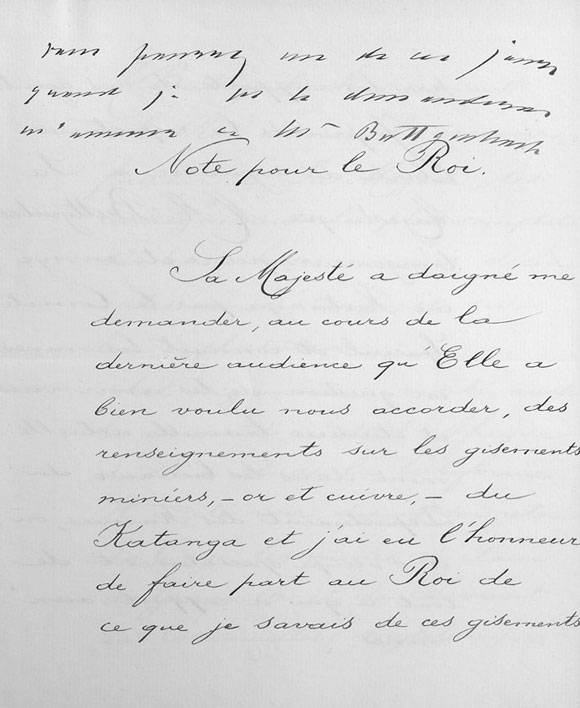 vous pourrez un de ces jours
quand je vous le demanderai
m'amener ce Mr Buttgenbach
Note pour le Roi.
Sa Majesté a daigné me
demander, au cours de la
dernière audience qu'Elle a
bien voulu nous accorder, des
renseignements sur les gisements
miniers, – or et cuivre, – du
Katanga et j'ai eu l'honneur
de faire part au Roi de
ce que je savais de ces gisements